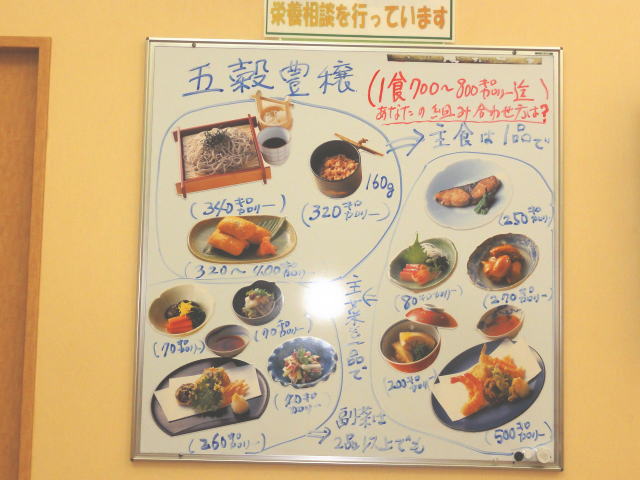 栄養相談を行っています
五穀豊穣
(1食700～800キロカロリー迄)
あなたの組み合わせ方は?
主食は1品で
160g
(340キロカロリー)
(320キロカロリー)
(320～400キロカロリー)
(250キロカロリー)
(80キロカロリー)
(270キロカロリー)
主菜も一品で
(70キロカロリー)
(90キロカロリー)
(200キロカロリー)
(260キロカロリー)
副菜は
2品以上でも
(500キロカロリー)